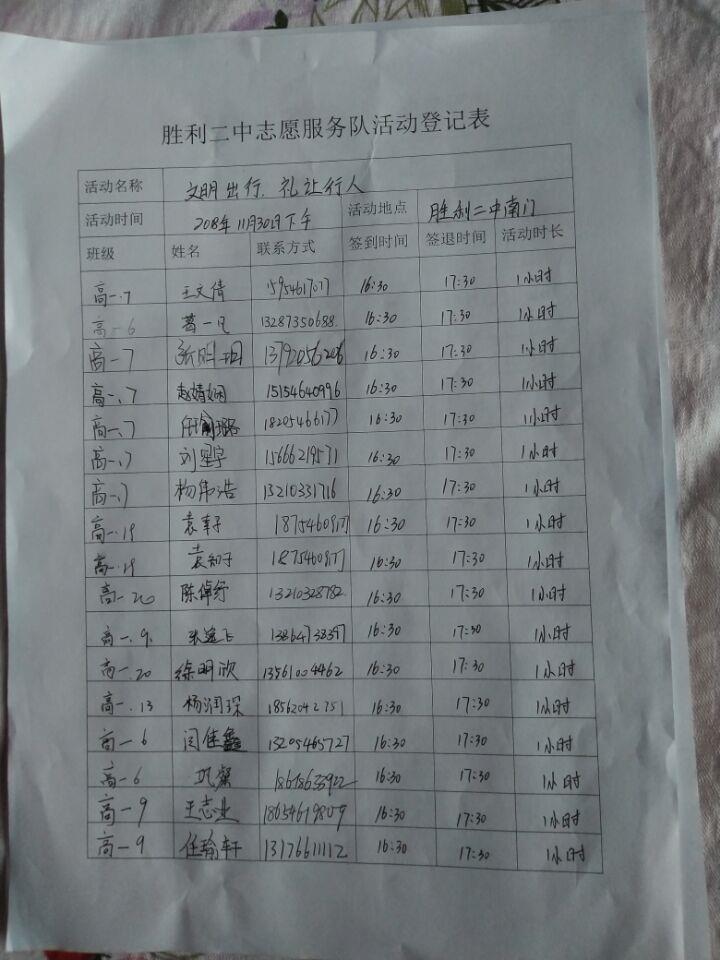 胜利二中志愿服务队活动登记表
活动名称 文明出行,礼让行人
活动时间 2018年11月30日下午 活动地点 胜利二中南门
班级 姓名 联系方式 签到时间 签退时间 活动时长
高一.7 王文倩 15954617017 16:30 17:30 1小时
高一6 葛一凡 13287350688 16:30 17:30 1小时
高一7 13792056206 16:30 17:30 1小时
高一.7 赵婧娴 15154640996 16:30 17:30 1小时
高一.7 任 璐 18205466177 16:30 17:30 1小时
高一.7 刘星宇 15666219571 16:30 17:30 1小时
高一.7 杨伟浩 13210331716 16:30 17:30 1小时
高一.19 袁 子 16:30 17:30 1小时
高一.19 袁 子 16:30 17:30 1小时
高一.20 陈倬 13210328782 16:30 17:30 1小时
高一.9 张 飞 13864738397 16:30 17:30 1小时
高一.20 徐明欣 13561004462 16:30 17:30 1小时
高一.13 杨润琛 18562042751 16:30 17:30 1小时
高一6 闫佳鑫 15205465727 16:30 17:30 1小时
高一6 巩 16:30 17:30 1小时
高一9 王志业 18654619809 16:30 17:30 1小时
高一9 任瑜轩 13176611112 16:30 17:30 1小时